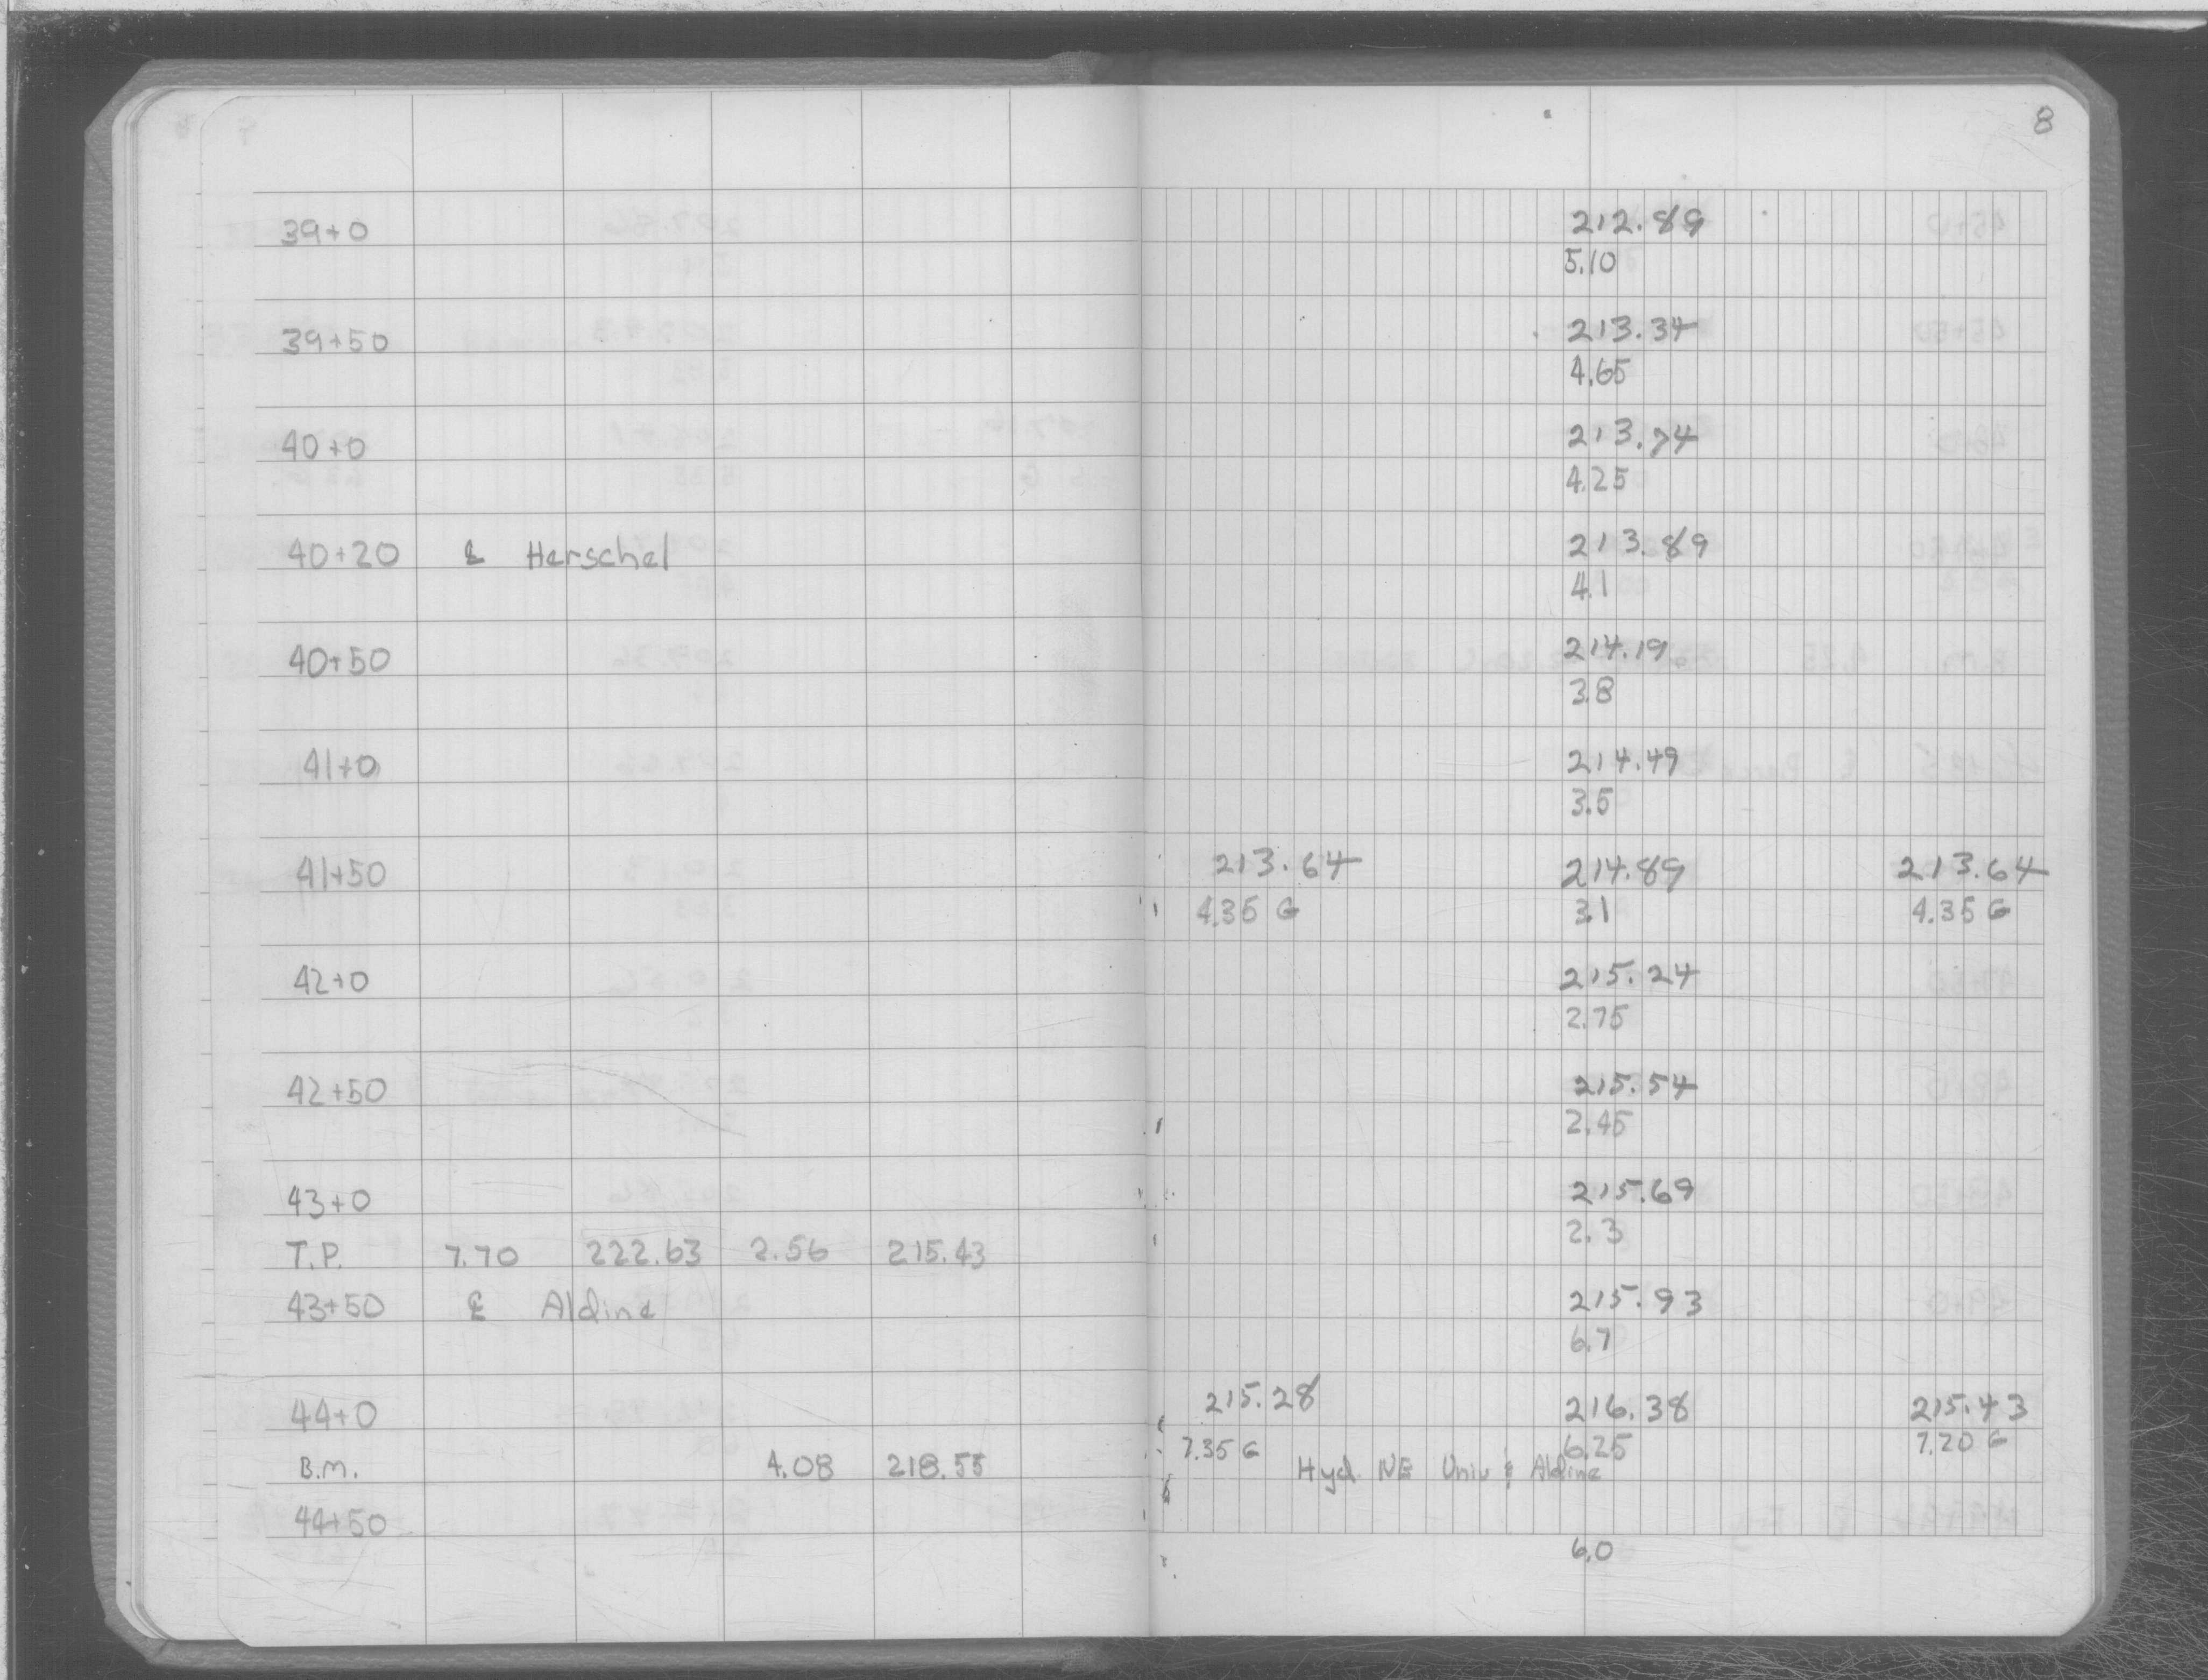 8
39+0 212.89
5.10
39+50 213.34
4.65
40+0 213.74
4.25
40+20 ℄ Herschel 213.89
4.1
40+50 214.19
3.8
41+0 214.49
3.5
41+50 213.64 214.89 213.64
4.35 G 3.1 4.35 G
42+0 215.24
2.75
42+50 215.54
2.45
43+0 215.69
2.3
T.P. 7.70 222.63 2.56 215.43
43+50 ℄ Aldine 215.93
6.7
44+0 215.28 216.38 215.43
7.35 G 6.25 7.20 G
B.M. 4.08 218.55 Hyd. NE Univ & Aldine
44+50
6.0